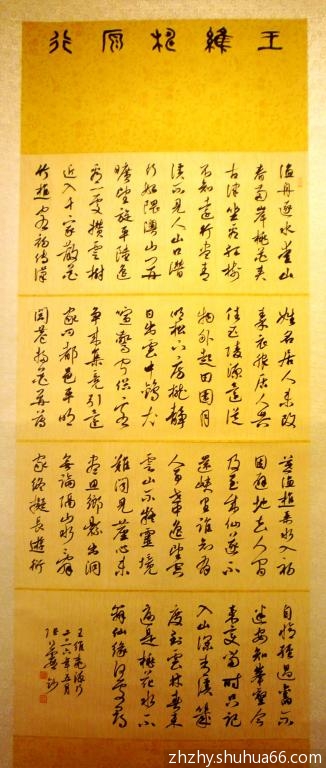 王維桃原行
漁舟逐水愛山
春兩岸桃花夾
古津坐看紅樹
不知遠行盡青
溪不見人山口潛
行始隈隩山開
曠望旋平陸遙
看一處攢雲樹
近入千家散花
竹樵客初傳漢
姓名居人未改
秦衣服居人共
住武陵源還從
物外起田園月
明松下房櫳靜
日出雲中雞犬
喧驚聞俗客
爭來集競引還
家問都邑平明
閭巷掃花開薄
暮漁樵乘水入初
因避地去人間
及至成仙遂不
還峽里誰知有
人事世中遙望空
雲山不疑靈境
難聞見塵心未
盡思鄉縣出洞
無論隔山水辭
家終擬長遊衍
自謂經過舊不
迷安知峯壑今
來變當時只記
入山深青溪幾
度到雲林春來
遍是桃花水不
辨仙源何處尋
王維桃源行
年五月
鈔
zhzhy.shuhua66.com